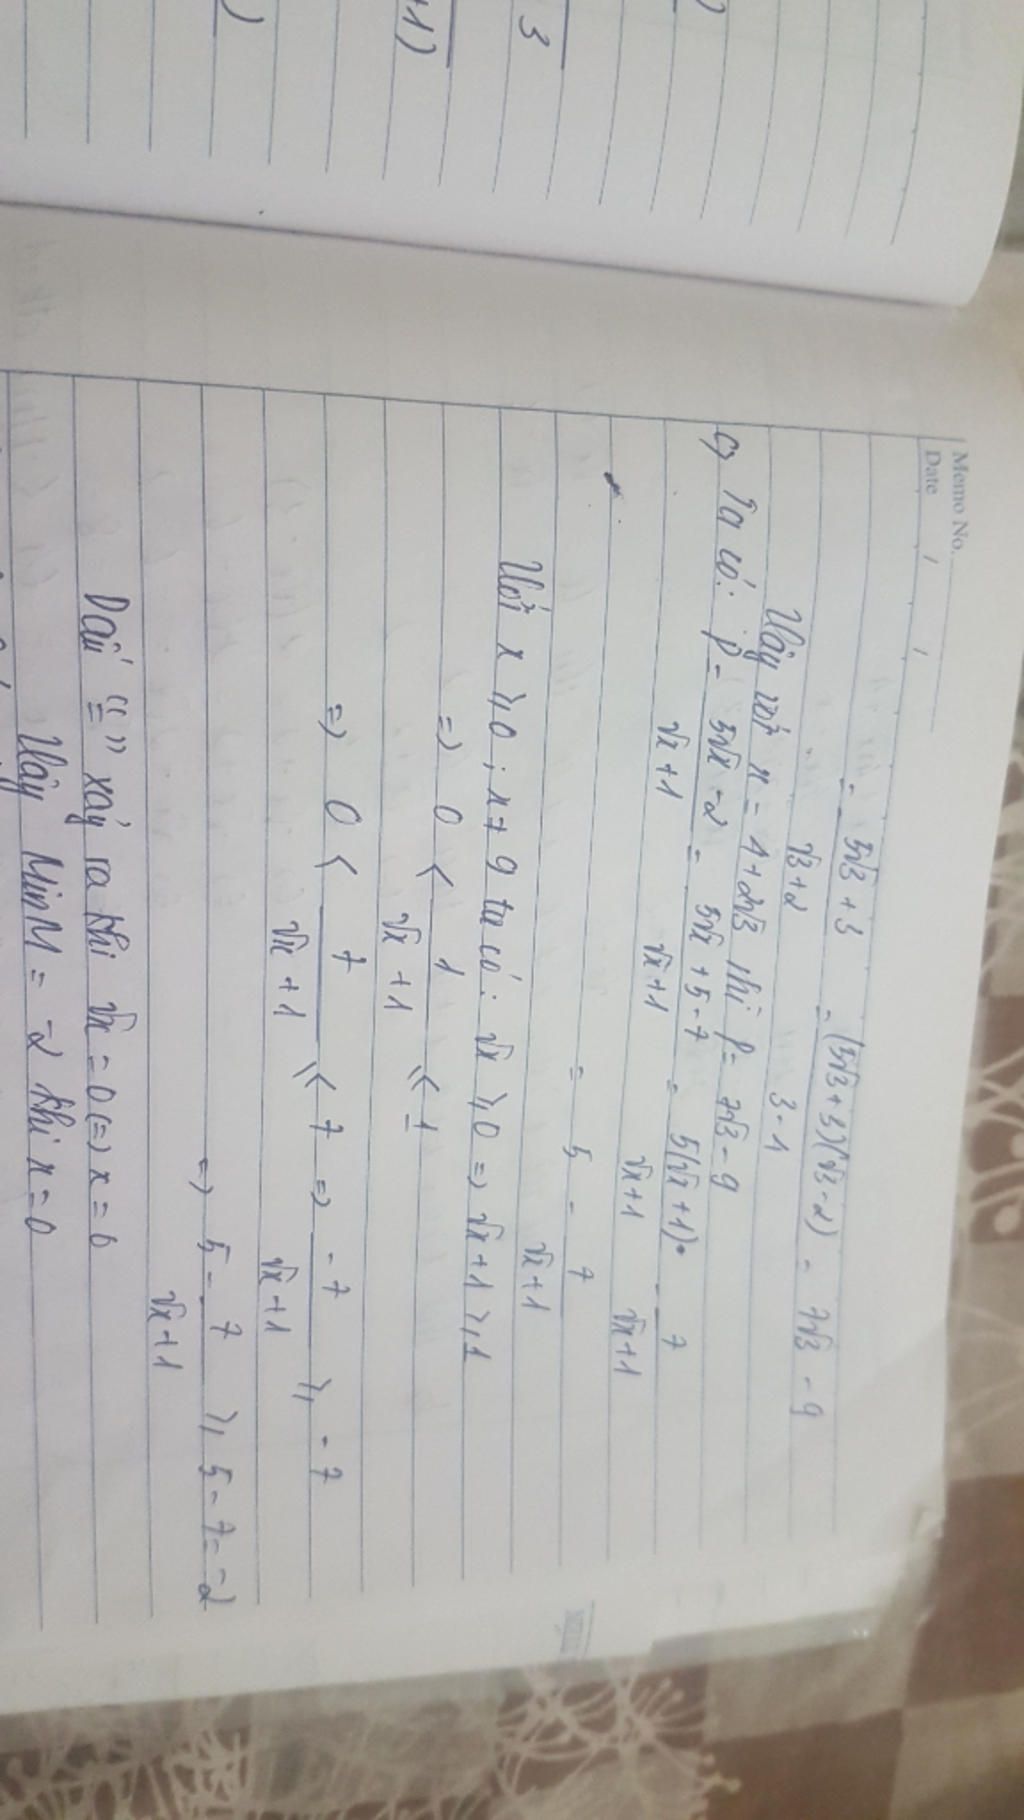 3
+1)
)
Memo No.
Date / /
= 5√3 + 3 = (5√3+3)(√3-2) = 7√3 - 9
√3+2 3-1
Vậy với x = 4+2√3 thì P = 7√3 - 9
c) Ta có: P = 5√x - 2 = 5√x + 5 - 7 = 5(√x + 1) - 7
√x+1 √x+1 √x+1 √x+1
= 5 - 7
√x+1
Với x ≥ 0; x ≠ 9 ta có: √x ≥ 0 => √x + 1 ≥ 1
=> 0 < 1 ≤ 1
√x + 1
=> 0 < 7 ≤ 7 => -7 ≥ -7
√x + 1 √x+1
=> 5 - 7 ≥ 5 - 7 = -2
√x+1
Dấu "=" xảy ra khi √x = 0 (=) x = 0
Vậy MinM = -2 khi x = 0